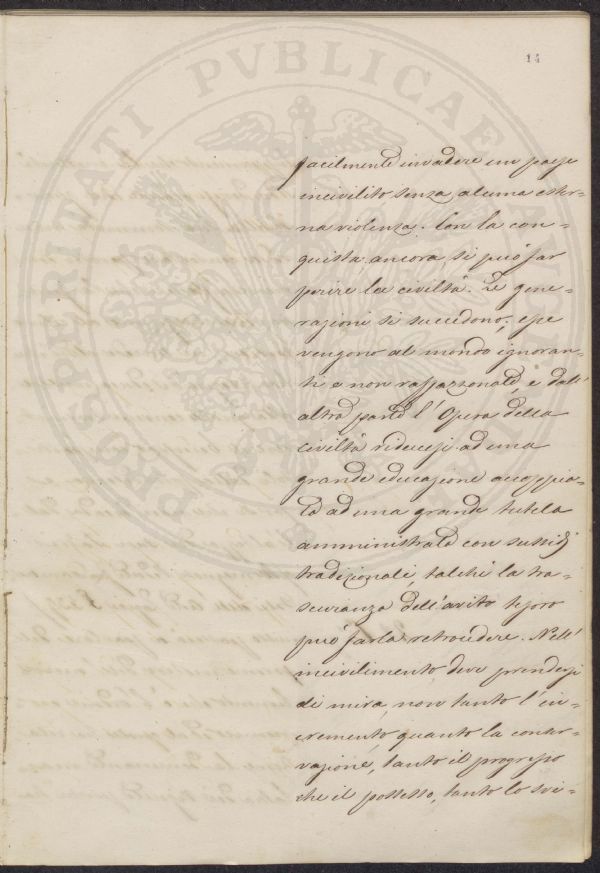 14
PROSPERITATI PVBLICAE AVGENDAE
facilmente invadere un paese
incivilito senza alcuna ester-
na violenza. Con la con-
quista ancora si può far
perire la civiltà. Le gene-
razioni si succedono; esse
vengono al mondo ignoran-
ti e non raffazzonate, e dall'
altra parte l'Opera della
civiltà riducesi ad una
grande educazione accoppia-
ta ad una grande tutela
amministrata con sussidj
tradizionali, talchè la tra-
scuranza dell'avito tesoro
può farla retrocedere. Nell'
incivilimento deve prendersi
di mira, non tanto l'in-
cremento quanto la conser-
vazione, tanto il progresso
che il possesso, tanto lo svi-